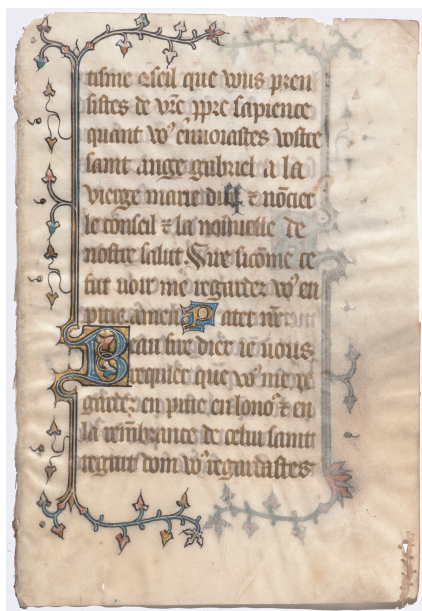 tisme gseil que vous pren
sistes de vr̄e ppre sapience
quant vo⁹ enuoiastes vostre
saint ange gabriel a la
vierge marie ⁊ nōcier
le conseil ⁊ la nouuelle de
nostre salut. Sire sicōme ce
fut uoir me regardez vo⁹ en
pitie amen Pater nr̄e
Beau sire dieu ie uous
requier que vo⁹ me re
gardez en pitie en lono⁹ ⁊ en
la remēbrance de celui saint
regart dont vo⁹ regardastes